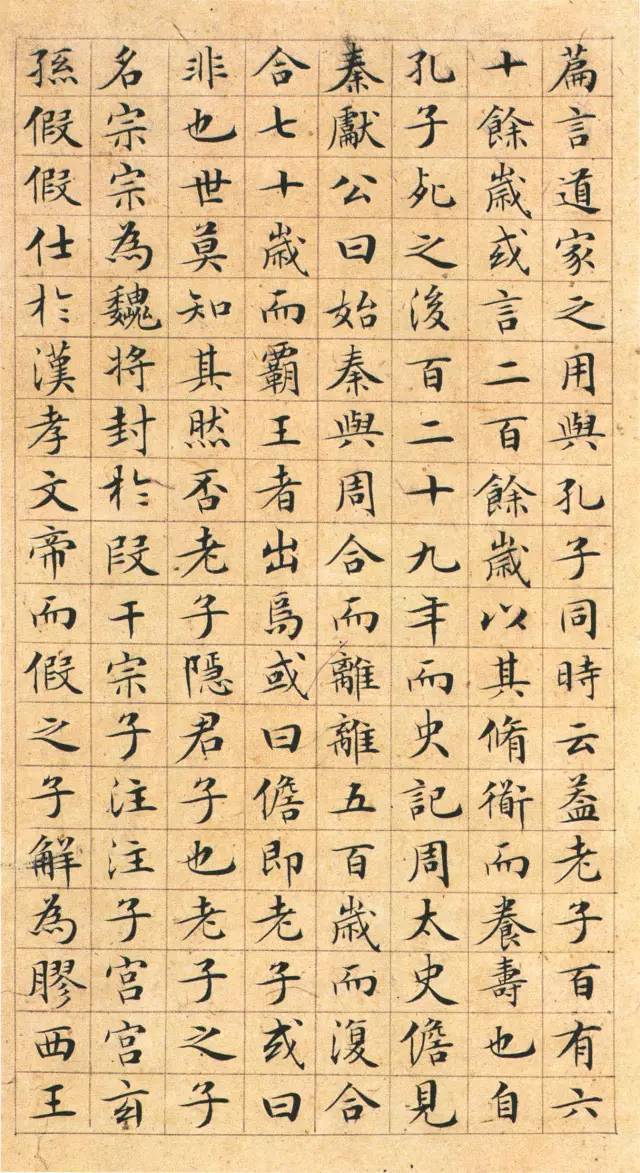 篇言道家之用與孔子同時云葢老子百有六
十餘歳或言二百餘歳以其脩衜而養壽也自
孔子死之後百二十九年而史記周太史儋見
秦獻公曰始秦與周合而離離五百歳而復合
合七十歳而霸王者出焉或曰儋即老子或曰
非也世莫知其然否老子隱君子也老子之子
名宗宗為魏將封於段干宗子注注子宮宮玄
孫假假仕於漢孝文帝而假之子解為膠西王